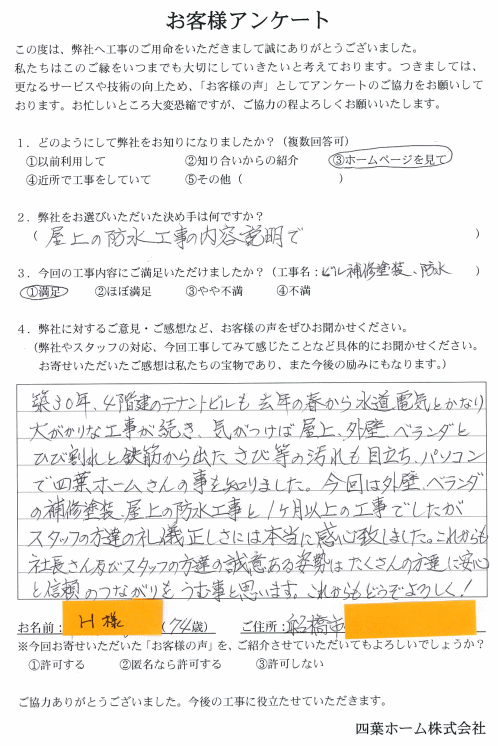 お客様アンケート
この度は、弊社へ工事のご用命をいただきまして誠にありがとうございました。
私たちはこのご縁をいつまでも大切にしていきたいと考えております。つきましては、
更なるサービスや技術の向上ため、「お客様の声」としてアンケートのご協力をお願いして
おります。お忙しいところ大変恐縮ですが、ご協力の程よろしくお願いいたします。
1．どのようにして弊社をお知りになりましたか？（複数回答可）
①以前利用して　②知り合いからの紹介　③ホームページを見て
④近所で工事をしていて　⑤その他（　　　　　　）
2．弊社をお選びいただいた決め手は何ですか？
（屋上の防水工事の内容説明で　　　　　　）
3．今回の工事内容にご満足いただけましたか？（工事名：ビル補修塗装、防水　）
①満足　②ほぼ満足　③やや不満　④不満
4．弊社に対するご意見・ご感想など、お客様の声をぜひお聞かせください。
（弊社やスタッフの対応、今回工事してみて感じたことなど具体的にお聞かせください。
お寄せいただいたご感想は私たちの宝物であり、また今後の励みにもなります。）
築30年、4階建のテナントビルも去年の春から水道電気とかなり
大がかりな工事が続き、気がつけば屋上、外壁、ベランダと
ひび割れと鉄筋から出たさび等の汚れも目立ち、パソコン
で四葉ホームさんの事を知りました。今回は外壁、ベランダ
の補修塗装、屋上の防水工事と1ヶ月以上の工事でしたが
スタッフの方達の礼儀正しさには本当に感心致しました。これからも
社長さん及びスタッフの方達の誠意ある姿勢はたくさんの方達に安心
と信頼のつながりをうむ事と思います。これからもどうぞよろしく！
お名前：H様　（74歳）　ご住所：船橋市
※今回お寄せいただいた「お客様の声」を、ご紹介させていただいてもよろしいでしょうか？
①許可する　②匿名なら許可する　③許可しない
ご協力ありがとうございました。今後の工事に役立たせていただきます。
四葉ホーム株式会社